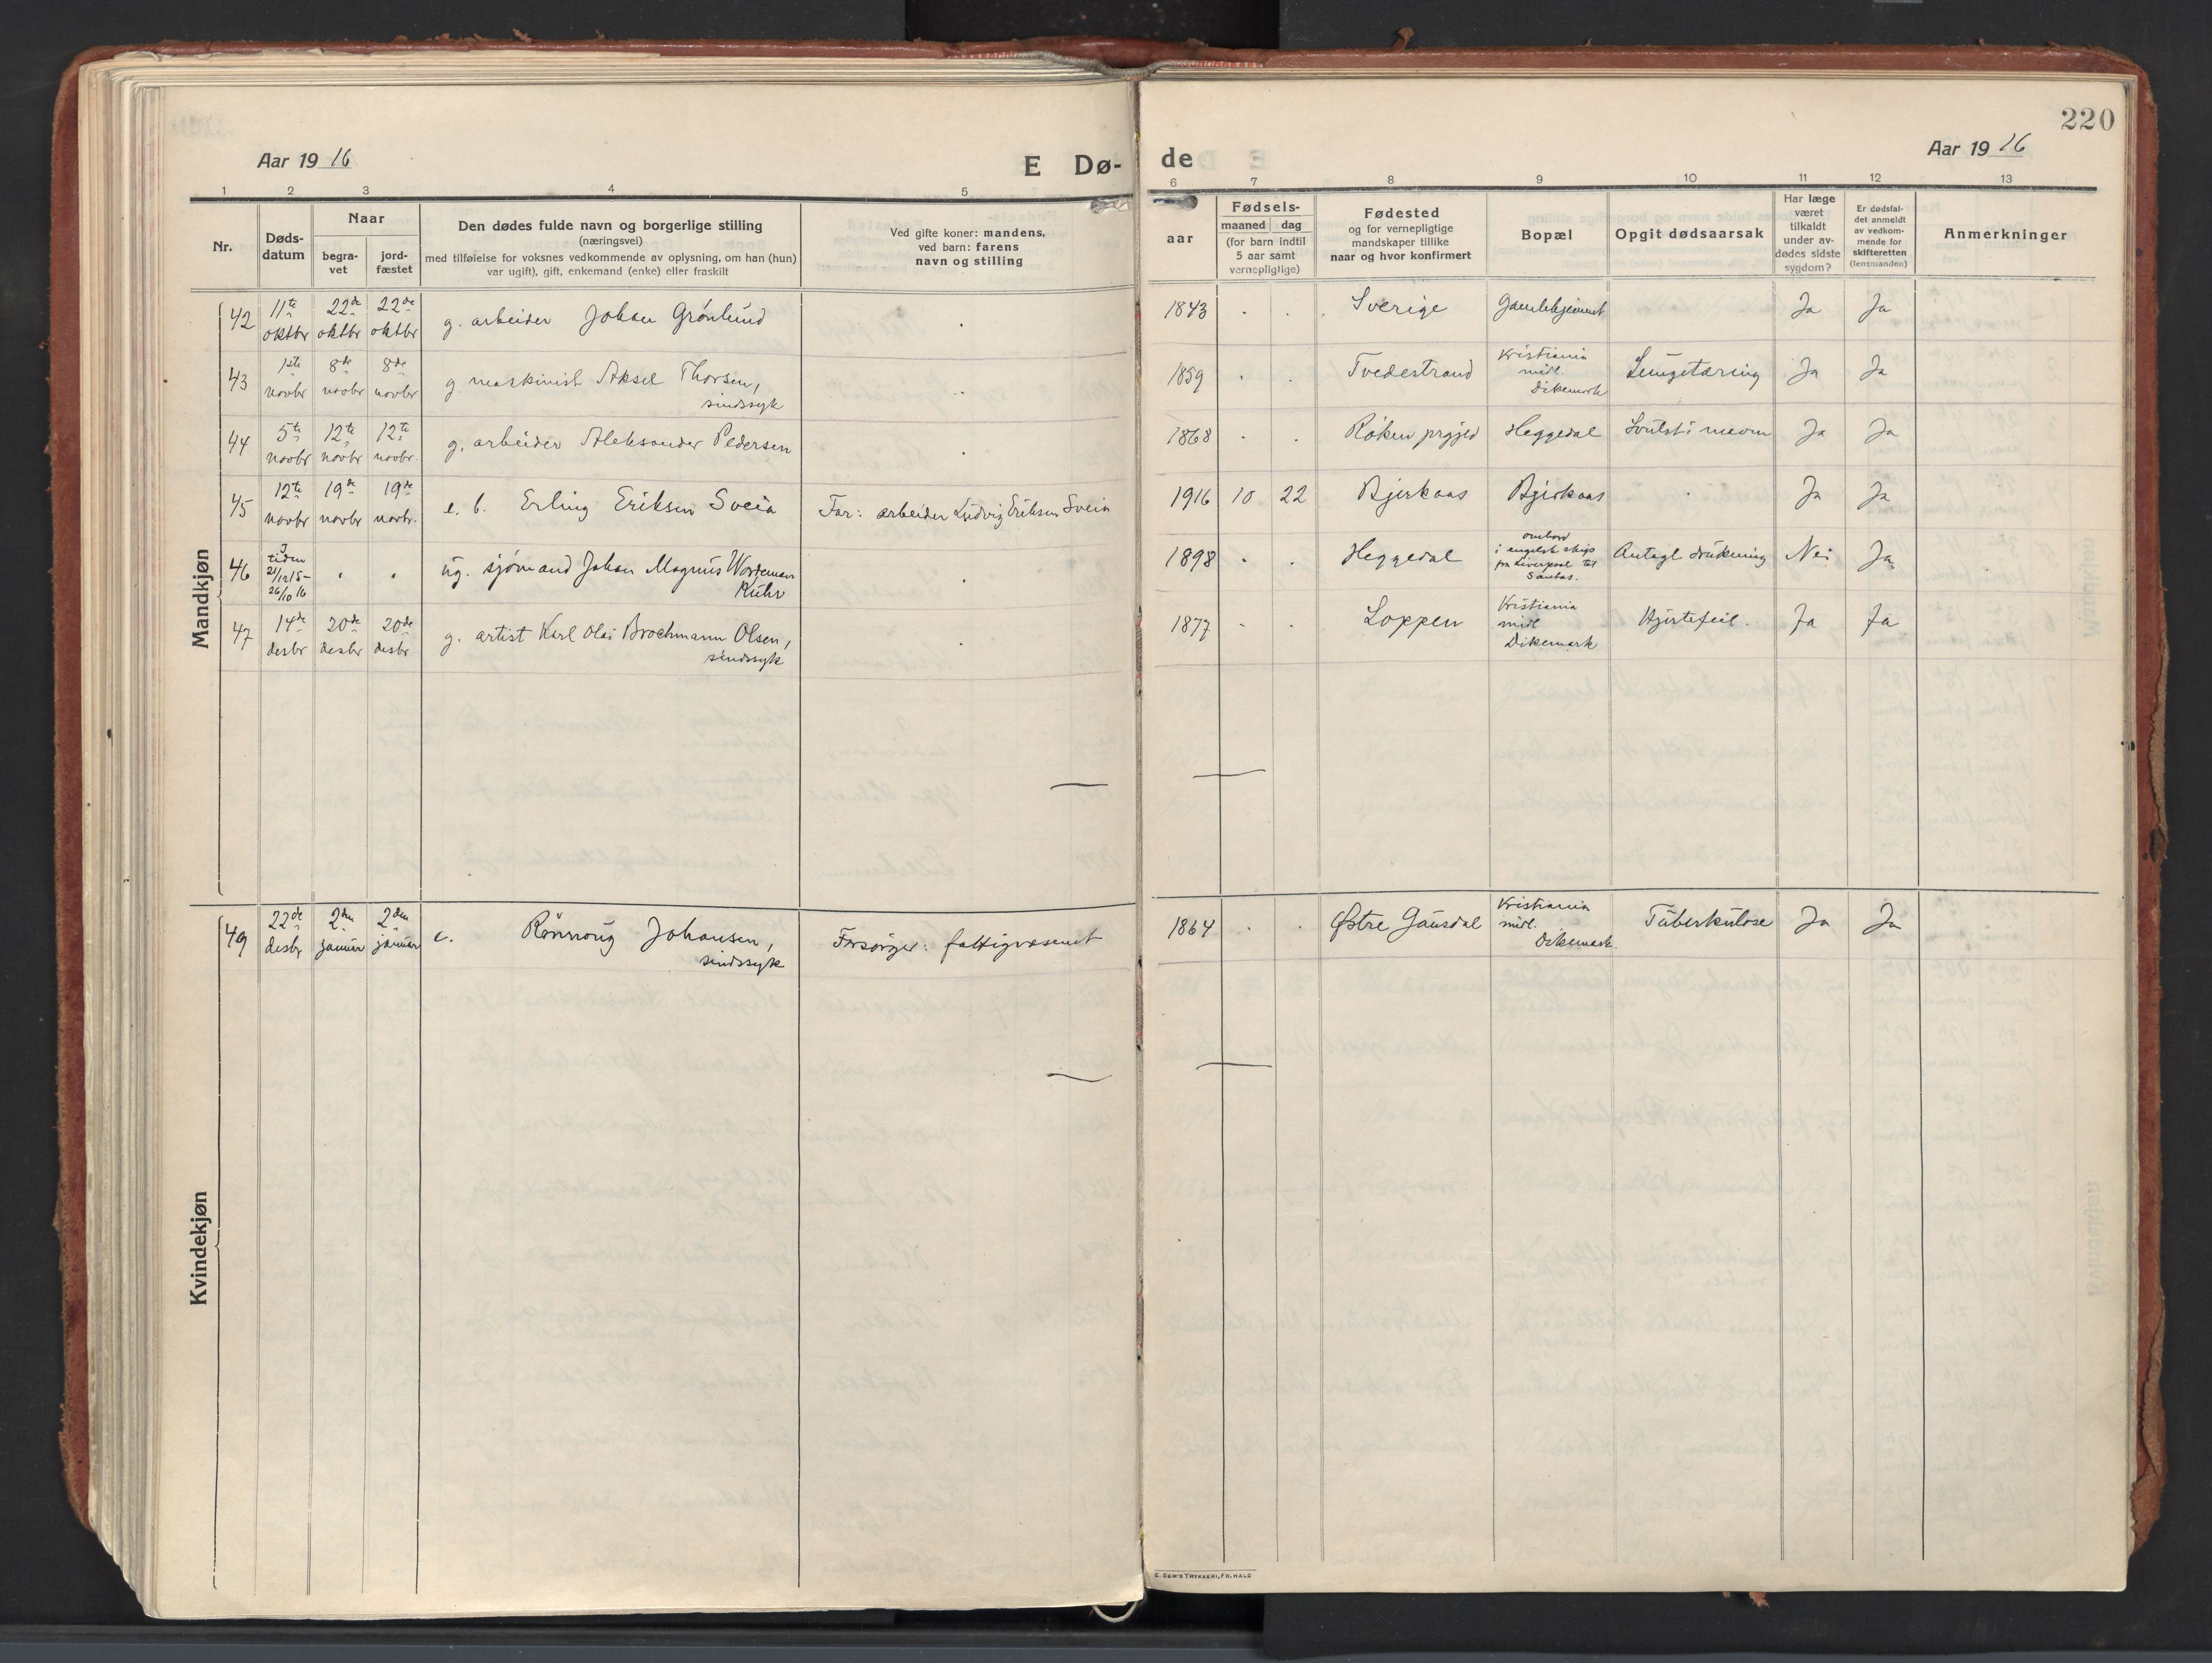 220
Aar 19 16
E Dø-
de
Aar 19 16
1 2 3 4 5 6 7 8 9 10 11 12 13
Nr.
Døds-
datum
Naar
begra-
vet
jord-
fæstet
Den dødes fulde navn og borgerlige stilling
(næringsvei)
med tilføielse for voksnes vedkommende av oplysning, om han (hun)
var ugift), gift, enkemand (enke) eller fraskilt
Ved gifte koner: mandens,
ved barn: farens
navn og stilling
aar
Fødsels-
maaned dag
(for barn indtil
5 aar samt
vernepligtige)
Fødested
og for vernepligtige
mandskaper tillike
naar og hvor konfirmert
Bopæl
Opgit dødsaarsak
Har læge
været
tilkaldt
under av-
dødes sidste
sygdom?
Er dødsfal-
det anmeldt
av vedkom-
mende for
skifteretten
(lensmanden)
Anmerkninger
Mandkjøn
42 11te oktbr 22de oktbr 22de oktbr g. arbeider Johan Grønlund 1843 Sverige Gamlehjemmet Ja Ja
43 1ste novbr 8de novbr 8de novbr g. maskinist Aksel Thorsen,
sindssyk 1859 Tvedestrand Kristiania
midl.
Dikemark Lungetæring Ja Ja
44 5te novbr 12te novbr 12te novbr. g. arbeider Aleksander Pedersen 1868 Røken prgjld Heggedal Svulst i maven Ja Ja
45 12te novbr 19de novbr 19de novbr. e. b. Erling Eriksen Sveia Far: arbeider Ludvig Eriksen Sveia 1916 10 22 Bjerkaas Bjerkaas Ja Ja
46 I
tiden
21/12 15-
26/10 16 ug. sjømand Johan Magnus
Kuhr 1898 Heggedal ombord
i engelsk skip
fra Liverpool til
Santos. Antagl drukning Nei Ja
47 14de desbr 20de desbr 20de desbr g. artist Karl Olai Brochmann Olsen,
sindssyk 1877 Loppen Kristiania
midl
Dikemark Hjertefeil. Ja Ja
Kvindekjøn
49 22de desbr 2den januar 2den januar e. Rønnoug Johansen,
sindssyk Forsørger: fattigvæsenet 1864 Østre Gausdal Kristiania
midl.
Dikemark. Tuberkulose Ja Ja
E. SEM'S TRYKKERI, FR.HALD